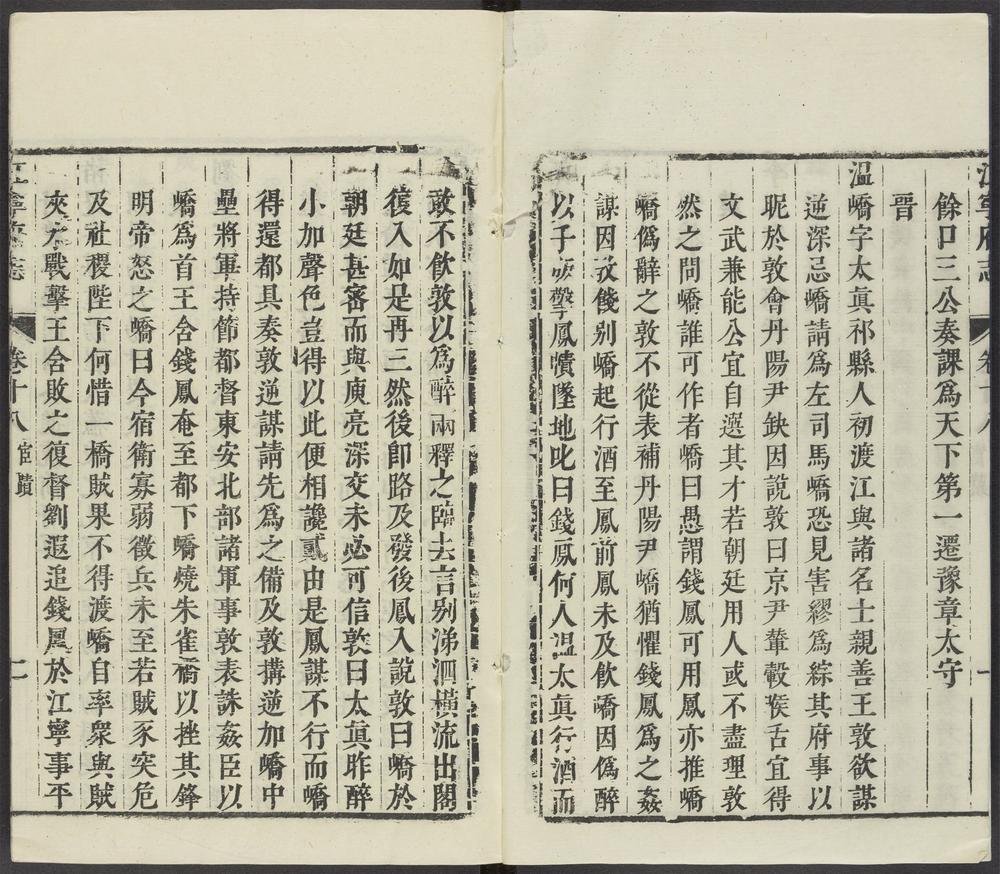 江寧府志 卷十八
餘口三公奏課爲天下第一遷豫章太守
晉
溫嶠字太眞祁縣人初渡江與諸名士親善王敦欲謀
逆深忌嶠請爲左司馬嶠恐見害繆爲綜其府事以
昵於敦會丹陽尹缺因說敦曰京尹輦轂喉舌宜得
文武兼能公宜自選其才若朝廷用人或不盡理敦
然之問嶠誰可作者嶠曰愚謂錢鳳可用鳳亦推嶠
嶠僞辭之敦不從表補丹陽尹嶠猶懼錢鳳爲之姦
謀因敦餞别嶠起行酒至鳳前鳳未及飲嶠因僞醉
以手擊鳳幘墜地叱曰錢鳳何人溫太眞行酒而
敢不飲敦以爲醉兩釋之臨去言别涕泗橫流出閣
復入如是再三然後卽路及發後鳳入說敦曰嶠於
朝廷甚密而與庾亮深交未必可信敦曰太眞昨醉
小加聲色豈得以此便相讒貳由是鳳謀不行而嶠
得還都具奏敦逆謀請先爲之備及敦搆逆加嶠中
壘將軍持節都督東安北部諸軍事敦表誅姦臣以
嶠爲首王含錢鳳奄至都下嶠燒朱雀橋以挫其鋒
明帝怒之嶠曰今宿衛寡弱徵兵未至若賊豕突危
及社稷陛下何惜一橋賊果不得渡嶠自率衆與賊
夾水戰擊王含敗之復督劉遐追錢鳳於江寧事平
江寧府志 卷十八 宦蹟 二